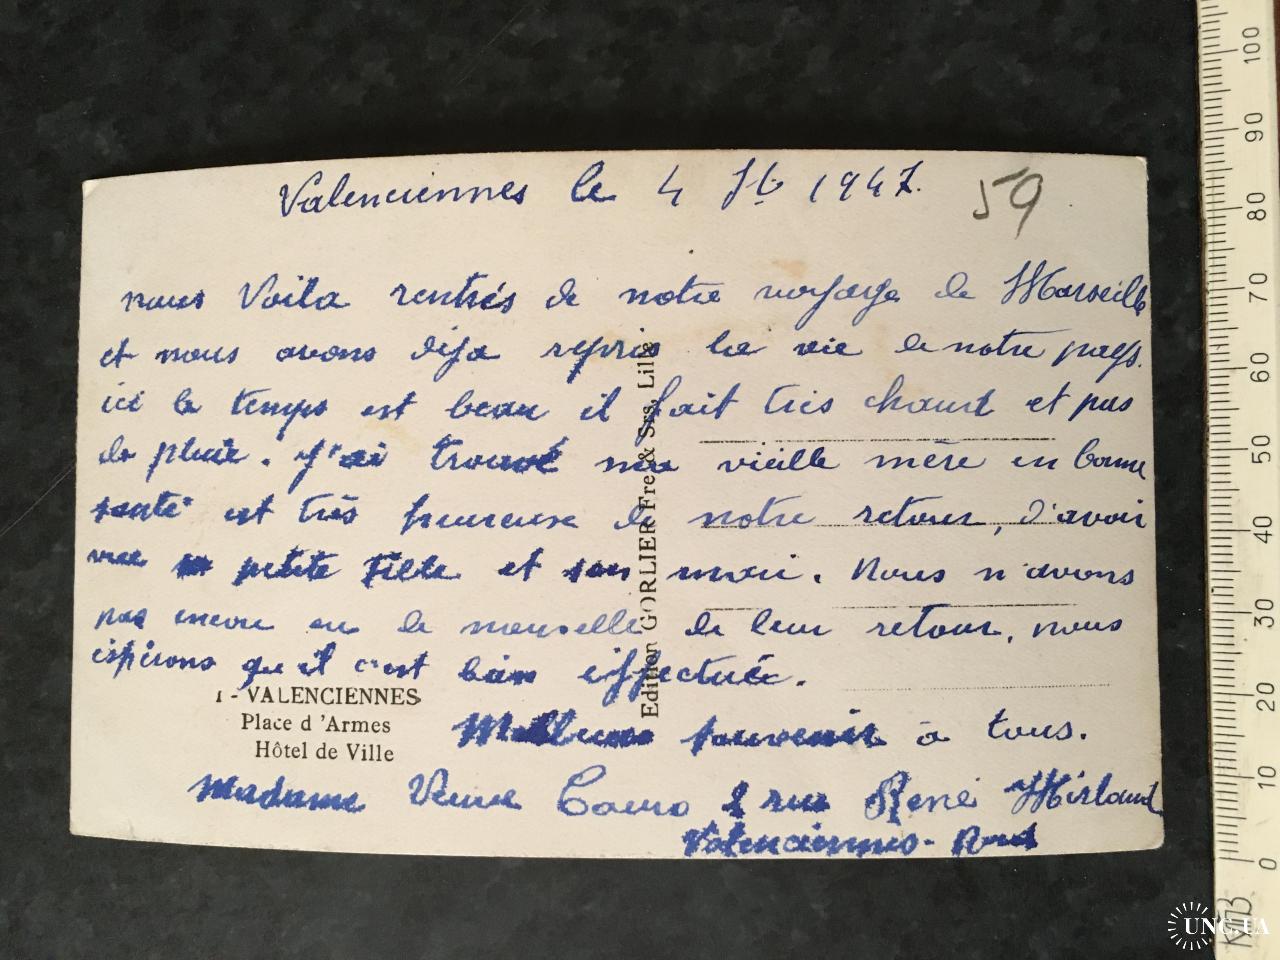 Valenciennes le 4 1947.
59
nous Voila rentrés de notre voyage de Marseille
et nous avons déja repris la vie de notre pays.
ici le temps est beau il fait très chaud et pas
de pluie. J'ai trouvé ma vieille mère en bonne
santé est très heureuse de notre retour, d'avoir
vue petite fille et son mari. Nous n'avons
pas encore eu de nouvelle de leur retour, nous
espérons qu'il c'est bien effectuée.
1 - VALENCIENNES
Place d'Armes
Hôtel de Ville
Edition GORLIER Fre & Srs, Lille
Meilleurs souvenir à tous.
Madame Veuve rue René Mirland
Valenciennes - Nord
100
90
80
70
60
50
40
30
20
10
0
UNC.UA